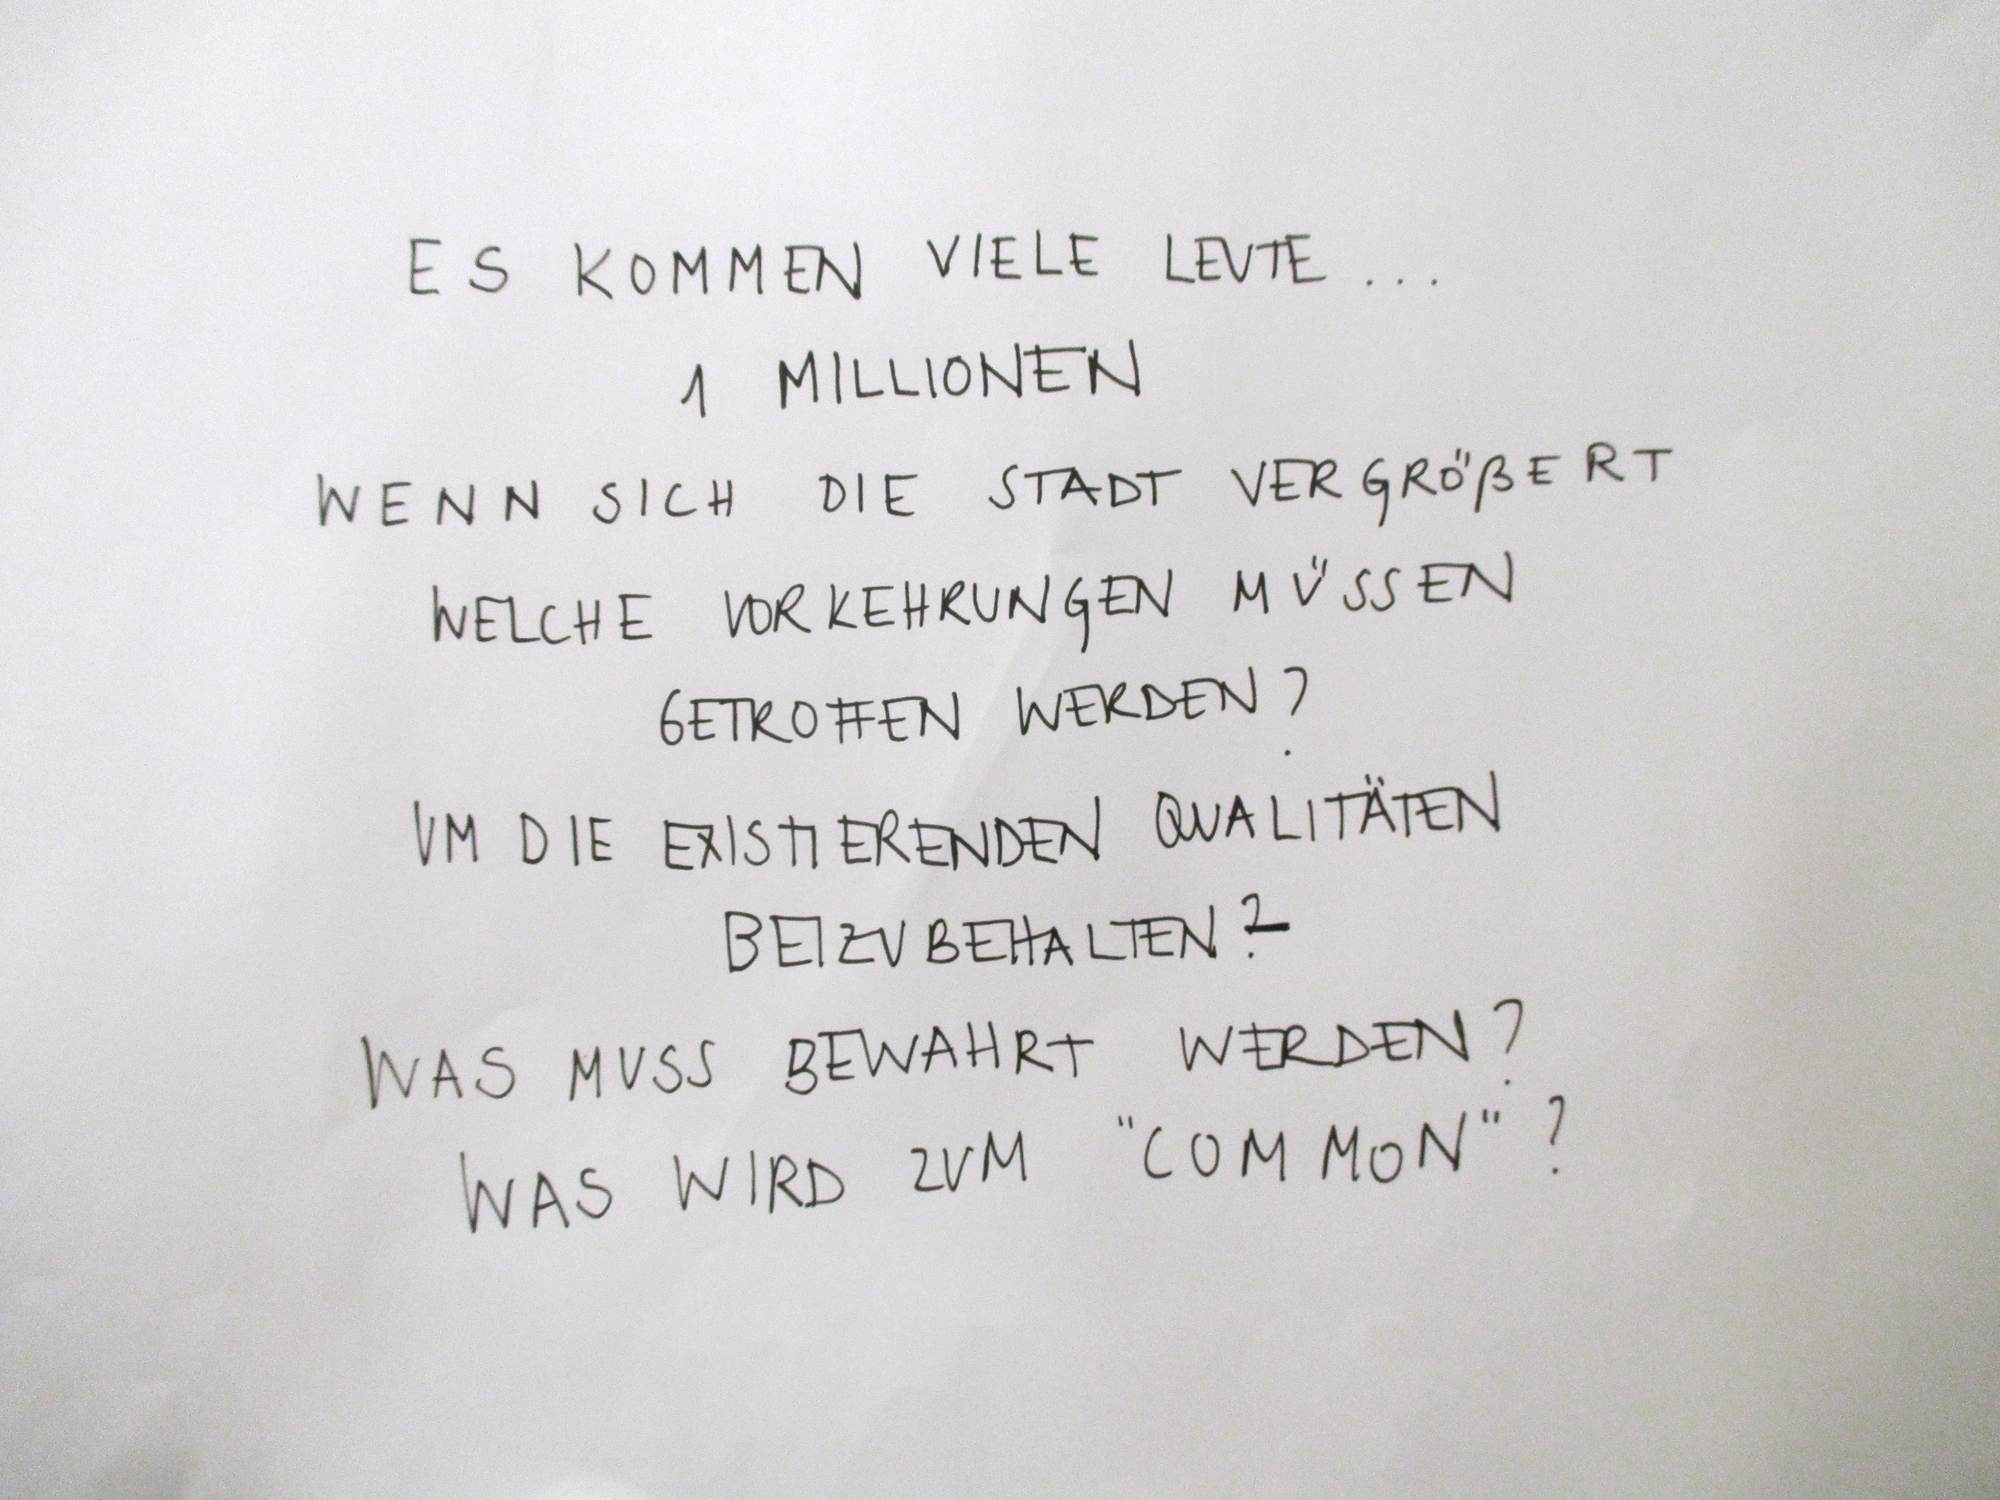 ES KOMMEN VIELE LEUTE ...
1 MILLIONEN
WENN SICH DIE STADT VERGRÖßERT
WELCHE VORKEHRUNGEN MÜSSEN
GETROFFEN WERDEN?
UM DIE EXISTIERENDEN QUALITÄTEN
BEIZUBEHALTEN?
WAS MUSS BEWAHRT WERDEN?
WAS WIRD ZUM "COMMON"?